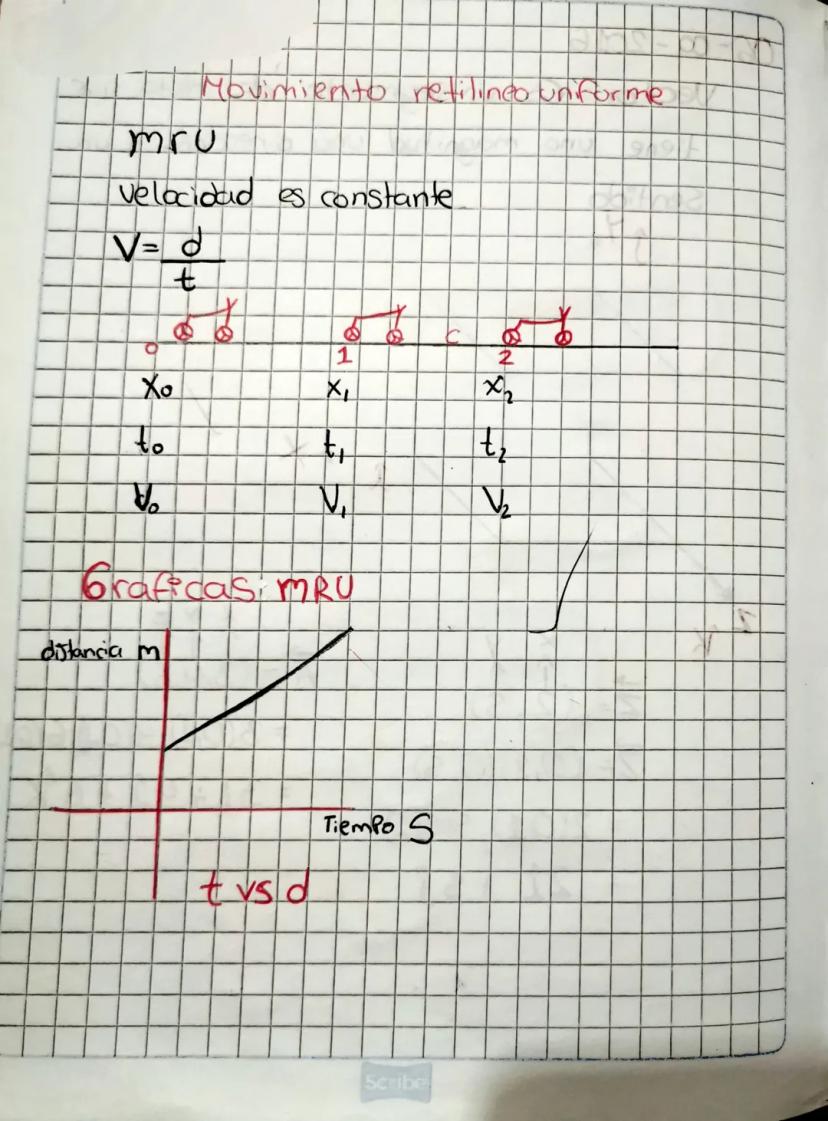 Movimiento retilineo uniforme
mru
velocidad es constante
V= d
t
0 1 c 2
x₀ x₁ x₂
t₀ t₁ t₂
V₀ V₁ V₂
Graficas: MRU
distancia m
Tiempo S
t vs d
Scribe